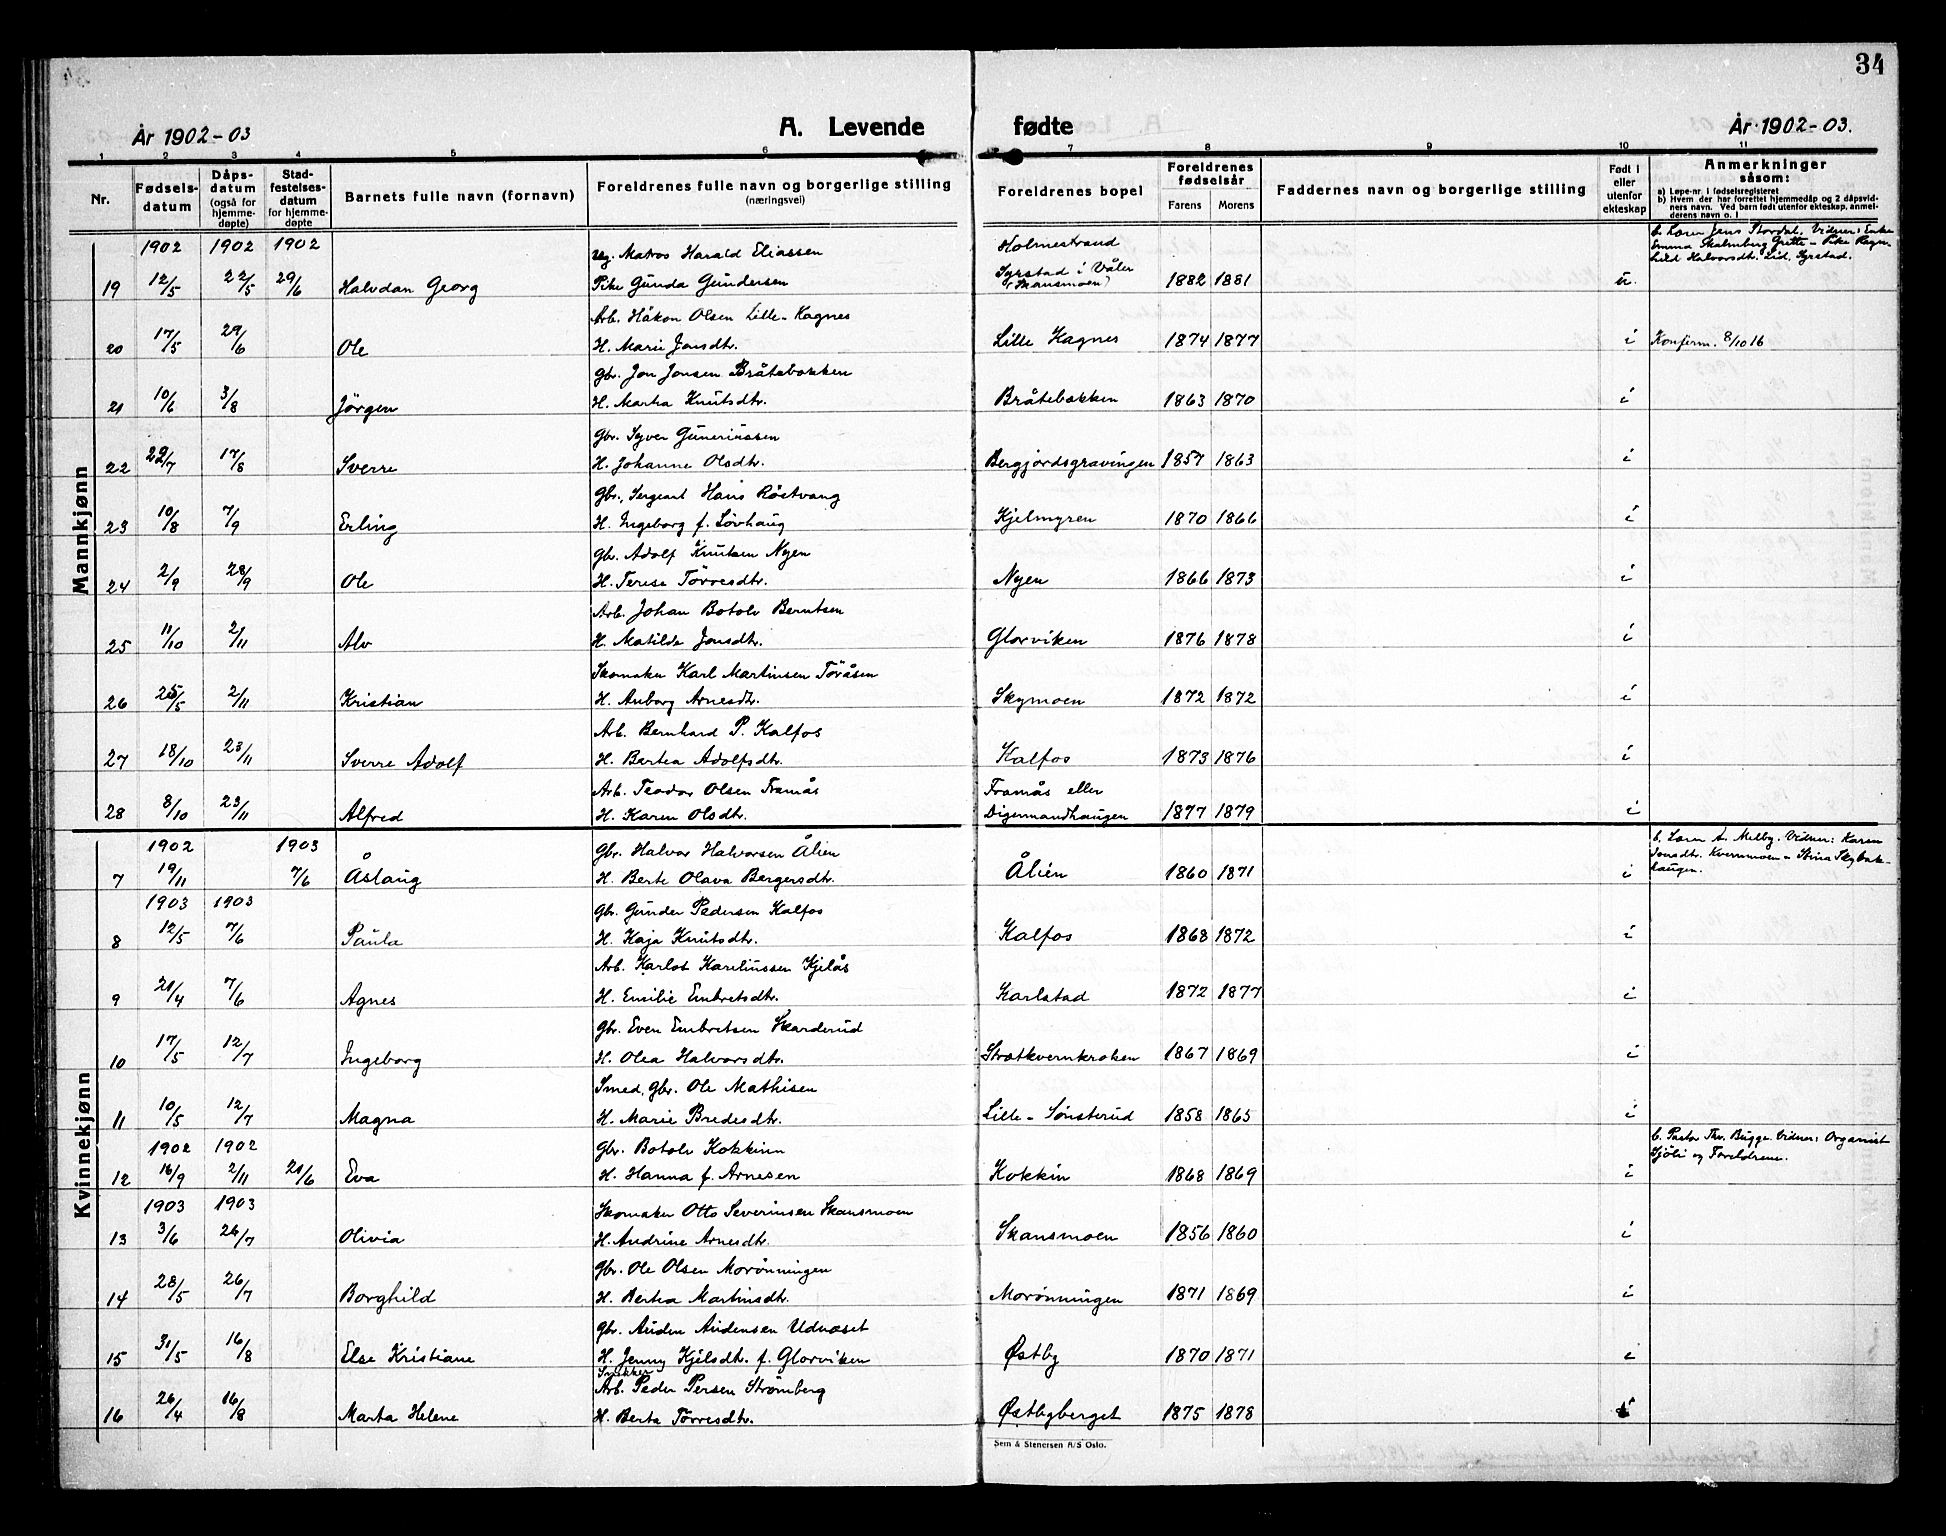 34
År 1902-03
A. Levende fødte
År 1902-03.
1 2 3 4 5 6 7 8 9 10 11
Nr.
Fødselsdatum
Dåpsdatum (også for hjemmedøpte)
Stadfestelsesdatum for hjemmedøpte
Barnets fulle navn (fornavn)
Foreldrenes fulle navn og borgerlige stilling (næringsvei)
Foreldrenes bopel
Foreldrenes fødselsår
Farens Morens
Faddernes navn og borgerlige stilling
Født i eller utenfor ekteskap
Anmerkninger såsom:
a) Løpe-nr. i fødselsregisteret
b) Hvem der har forrettet hjemmedåp og 2 dåpsvidners navn. Ved barn født utenfor ekteskap, anmelderens navn o. l
Mannkjønn
1902 1902 1902 Ug. Matros Harald Eliassen Holmestrand b. Lærer Jens Stordal. Vidner: Enke
Emma Skalmberg Grette - Pike Ragn-
19 12/5 22/5 29/6 Halvdan Georg Pike Gunda Gundersen Syrstad i Våler (Skansmoen) 1882 1881 u. hild Halvorsdtr. Lid, Syrstad.
Arb. Håkon Olsen Lille-Hagnes
20 17/5 29/6 Ole H. Marie Jonsdtr. Lille Hagnes 1874 1877 i Konfirm. 8/10 16
Gbr. Jon Jonsen Bråtebakken
21 10/6 3/8 Jörgen H. Martha Knutsdtr. Bråtebakken 1863 1870 i
Gbr. Syver Guneriussen
22 22/7 17/8 Sverre H. Johanne Olsdtr. Bergjordsgravingen 1857 1863 i
Gbr., Sergeant Hans Röstvang
23 10/8 7/9 Erling H. Ingeborg f. Lövhaug Kjelmyren 1870 1866 i
Gbr. Adolf Knutsen Nyen
24 2/9 28/9 Ole H. Terese Törresdtr. Nyen 1866 1873 i
Arb. Johan Botolv Berntsen
25 11/10 2/11 Alv H. Matilde Jonsdtr. Glorviken 1876 1878 i
Skomaker Karl Martinsen Töråsen
26 25/5 2/11 Kristian H. Anborg Arnesdtr. Skymoen 1872 1872 i
Arb. Bernhard P. Kalfos
27 18/10 23/11 Sverre Adolf H. Bertea Adolfsdtr. Kalfos 1873 1876 i
Arb. Teodor Olsen Framås Framås eller
28 8/10 23/11 Alfred H. Karen Olsdtr. Digermandhaugen 1877 1879 i
Kvinnekjønn
1902 1903 Gbr. Halvor Halvorsen Ålien b. Lærer A. Melby. Vidner: Karen
Jonsdtr. Kvernmoen - Stina Skybak-
7 19/11 7/6 Åslaug H. Berte Olava Bergersdtr. Ålien 1860 1871 i haugen.
1903 1903 Gbr. Gunder Pedersen Kalfos
8 12/5 7/6 Paula H. Kaja Knutsdtr. Kalfos 1868 1872 i
Arb. Karlot Kareliussen Kjelås
9 21/4 7/6 Agnes H. Emilie Embretsdtr. Karlstad 1872 1877 i
Gbr. Even Embretsen Skarderud
10 17/5 12/7 Ingeborg H. Olea Halvorsdtr. Strætkvernkroken 1867 1869 i
Smed, Gbr. Ole Mathisen
11 10/5 12/7 Magna H. Marie Bredesdtr. Lille-Sønsterud 1858 1865 i
1902 1902 Gbr. Botolv Kokkinn b. Pastor Thv. Bugge. Vidner: Organist
12 16/9 2/11 21/6 Eva H. Hanna f. Arnesen Kokkin 1868 1869 i Sjöli og Foreldrene.
1903 1903 Skomaker Otto Severinsen Skansmoen
13 3/6 26/7 Olivia H. Andrine Arnesdtr. Skansmoen 1856 1860 i
Gbr. Ole Olsen Morönningen
14 28/5 26/7 Borghild H. Bertea Martinsdtr. Morönningen 1871 1869 i
Gbr. Auden Audensen Udnæset
15 31/5 16/8 Else Kristiane H. Jenny Kjelsdtr. f. Glorviken Østby 1870 1871 i
Snikker
Arb. Peder Persen Strømberg
16 26/4 16/8 Marta Helene H. Berta Törresdtr. Østbyberget 1875 1878 i
Sem & Stenersen A/S Oslo.